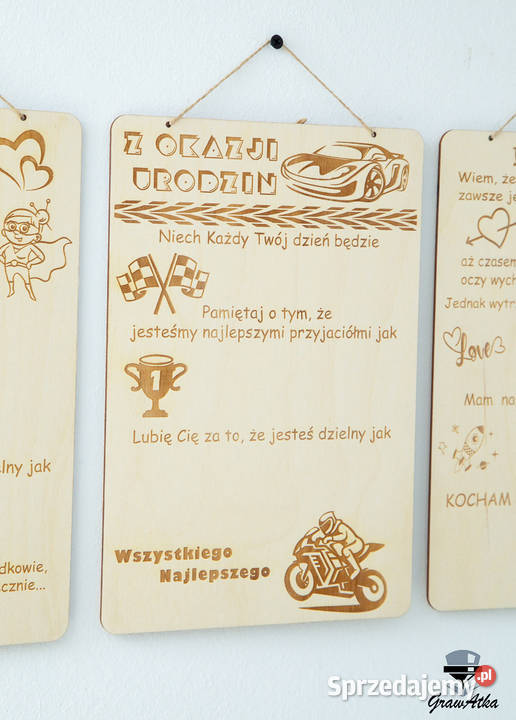 Z OKAZJI
URODZIN
Niech Każdy Twój dzień będzie
Pamiętaj o tym, że
jesteśmy najlepszymi przyjaciółmi jak
1
Lubię Cię za to, że jesteś dzielny jak
Wszystkiego
Najlepszego
lny jak
dkowie,
cznie...
Wiem, że
zawsze je
aż czasem
oczy wych
Jednak wytr
Love
Mam na
KOCHAM
Sprzedajemy.pl
GrawAtka